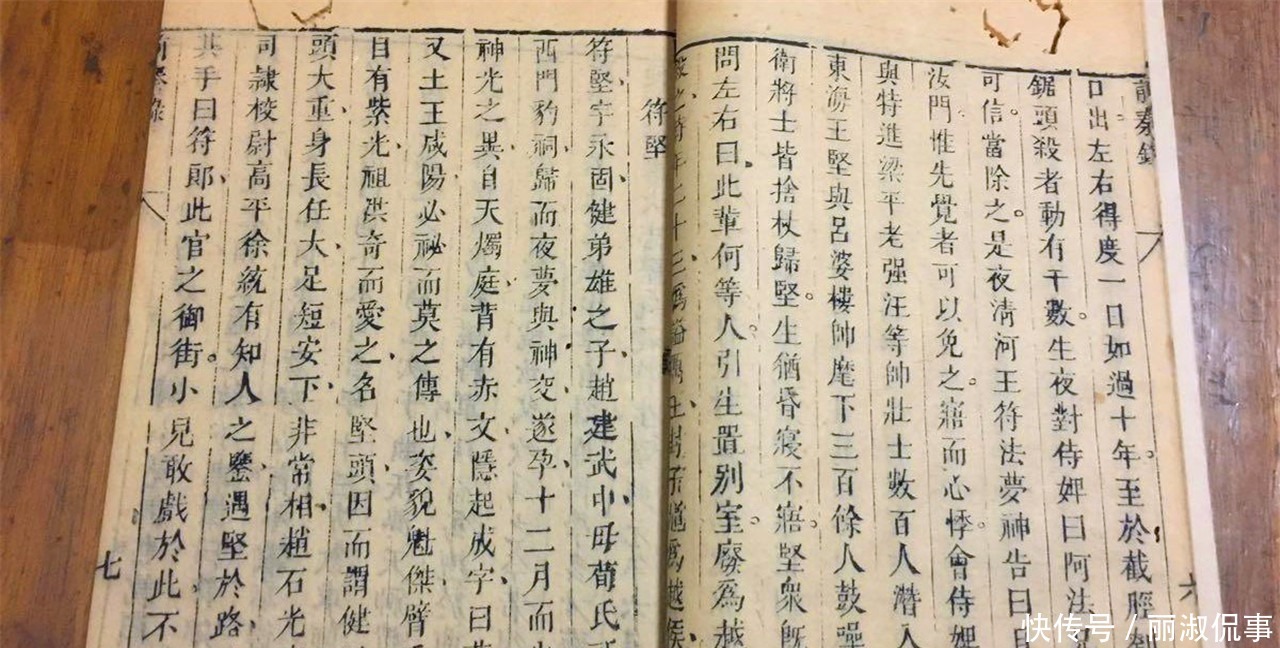 前秦錄
口出左右得度一日如過十年至於截脛
鋸頭殺者動有千數生夜對侍婢曰阿法兄
可信當除之是夜清河王符法夢神告曰旦
汝門惟先覺者可以免之寤而心悸會侍婢
與特進梁平老强汪等帥壯士數百人潛入
東海王堅與呂婆樓帥麾下三百餘人鼓噪
衛將士皆捨杖歸堅生猶昏寢不寤堅衆旣
問左右曰此輩何等人引生置别室廢爲越
二十三
爲越
六
符堅
符堅字永固健弟雄之子趙建武中母苟氏
西門豹祠歸而夜夢與神交遂孕十二月而
神光之異自天燭庭背有赤文隱起成字曰
又土王咸陽必祕而莫之傳也姿貌魁傑臂
目有紫光祖洪奇而愛之名堅頭因而謂健
頭大重身長任大足短安下非常相趙石光
司隷校尉高平徐統有知人之鑒遇堅於路
其手曰符郎此官之御街小兒敢戲於此不
前秦錄
七
快传号 / 丽淑侃事